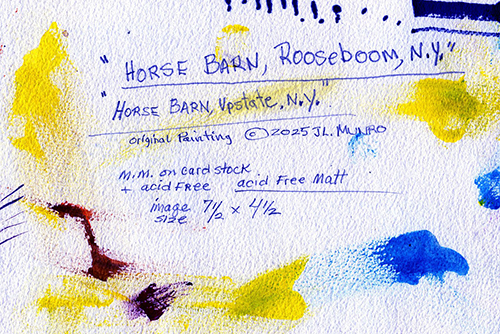 "HORSE BARN, ROOSEBOOM, N.Y."
"HORSE BARN, Upstate, N.Y."
original Painting © 2025 JL. MUNRO
m.m. on card stock
+ acid FREE acid Free Matt
image size 7 1/2 x 4 1/2